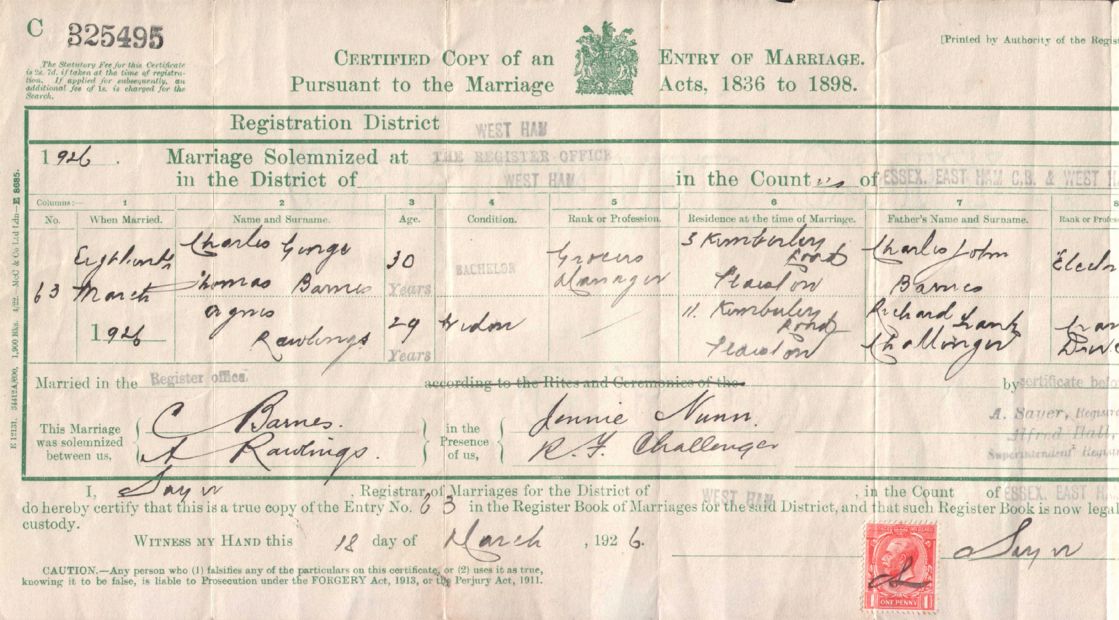 C 325495
The Statutory Fee for this Certificate
is 2s. 7d. if taken at the time of registra-
tion. If applied for subsequently, an
additional fee of 1s. is charged for the
Search.
[Printed by Authority of the Regis
CERTIFIED COPY OF AN ENTRY OF MARRIAGE.
Pursuant to the Marriage Acts, 1836 to 1898.
Registration District WEST HAM
1926. Marriage Solemnized at THE REGISTER OFFICE
in the District of WEST HAM in the Count of ESSEX. EAST HAM C.B. & WEST H
Columns:— 1 2 3 4 5 6 7 8
No. When Married. Name and Surname. Age. Condition. Rank or Profession. Residence at the time of Marriage. Father's Name and Surname. Rank or Profes
63 Eighteenth March 1926
Charles George Thomas Barnes 30 Years BACHELOR Grocers Manager 3 Kimberley Road Plaistow Charles John Barnes
Agnes Rawlings 29 Years Widow 11. Kimberley Road Plaistow Richard Frank Challenger
Married in the Register office according to the Rites and Ceremonies of the by certificate befo
This Marriage was solemnized between us, C Barnes. A Rawlings. in the Presence of us, Jennie Nunn. R. F. Challenger
A. Sayer, Registra
Alfred Hall,
Superintendent Registra
I, Sayer, Registrar of Marriages for the District of WEST HAM, in the Count of ESSEX. EAST H
do hereby certify that this is a true copy of the Entry No. 63 in the Register Book of Marriages for the said District, and that such Register Book is now legal
custody.
WITNESS MY HAND this 18 day of March, 1926.
Sayer
CAUTION.—Any person who (1) falsifies any of the particulars on this certificate, or (2) uses it as true,
knowing it to be false, is liable to Prosecution under the FORGERY Act, 1913, or the Perjury Act, 1911.
1 ONE PENNY 1